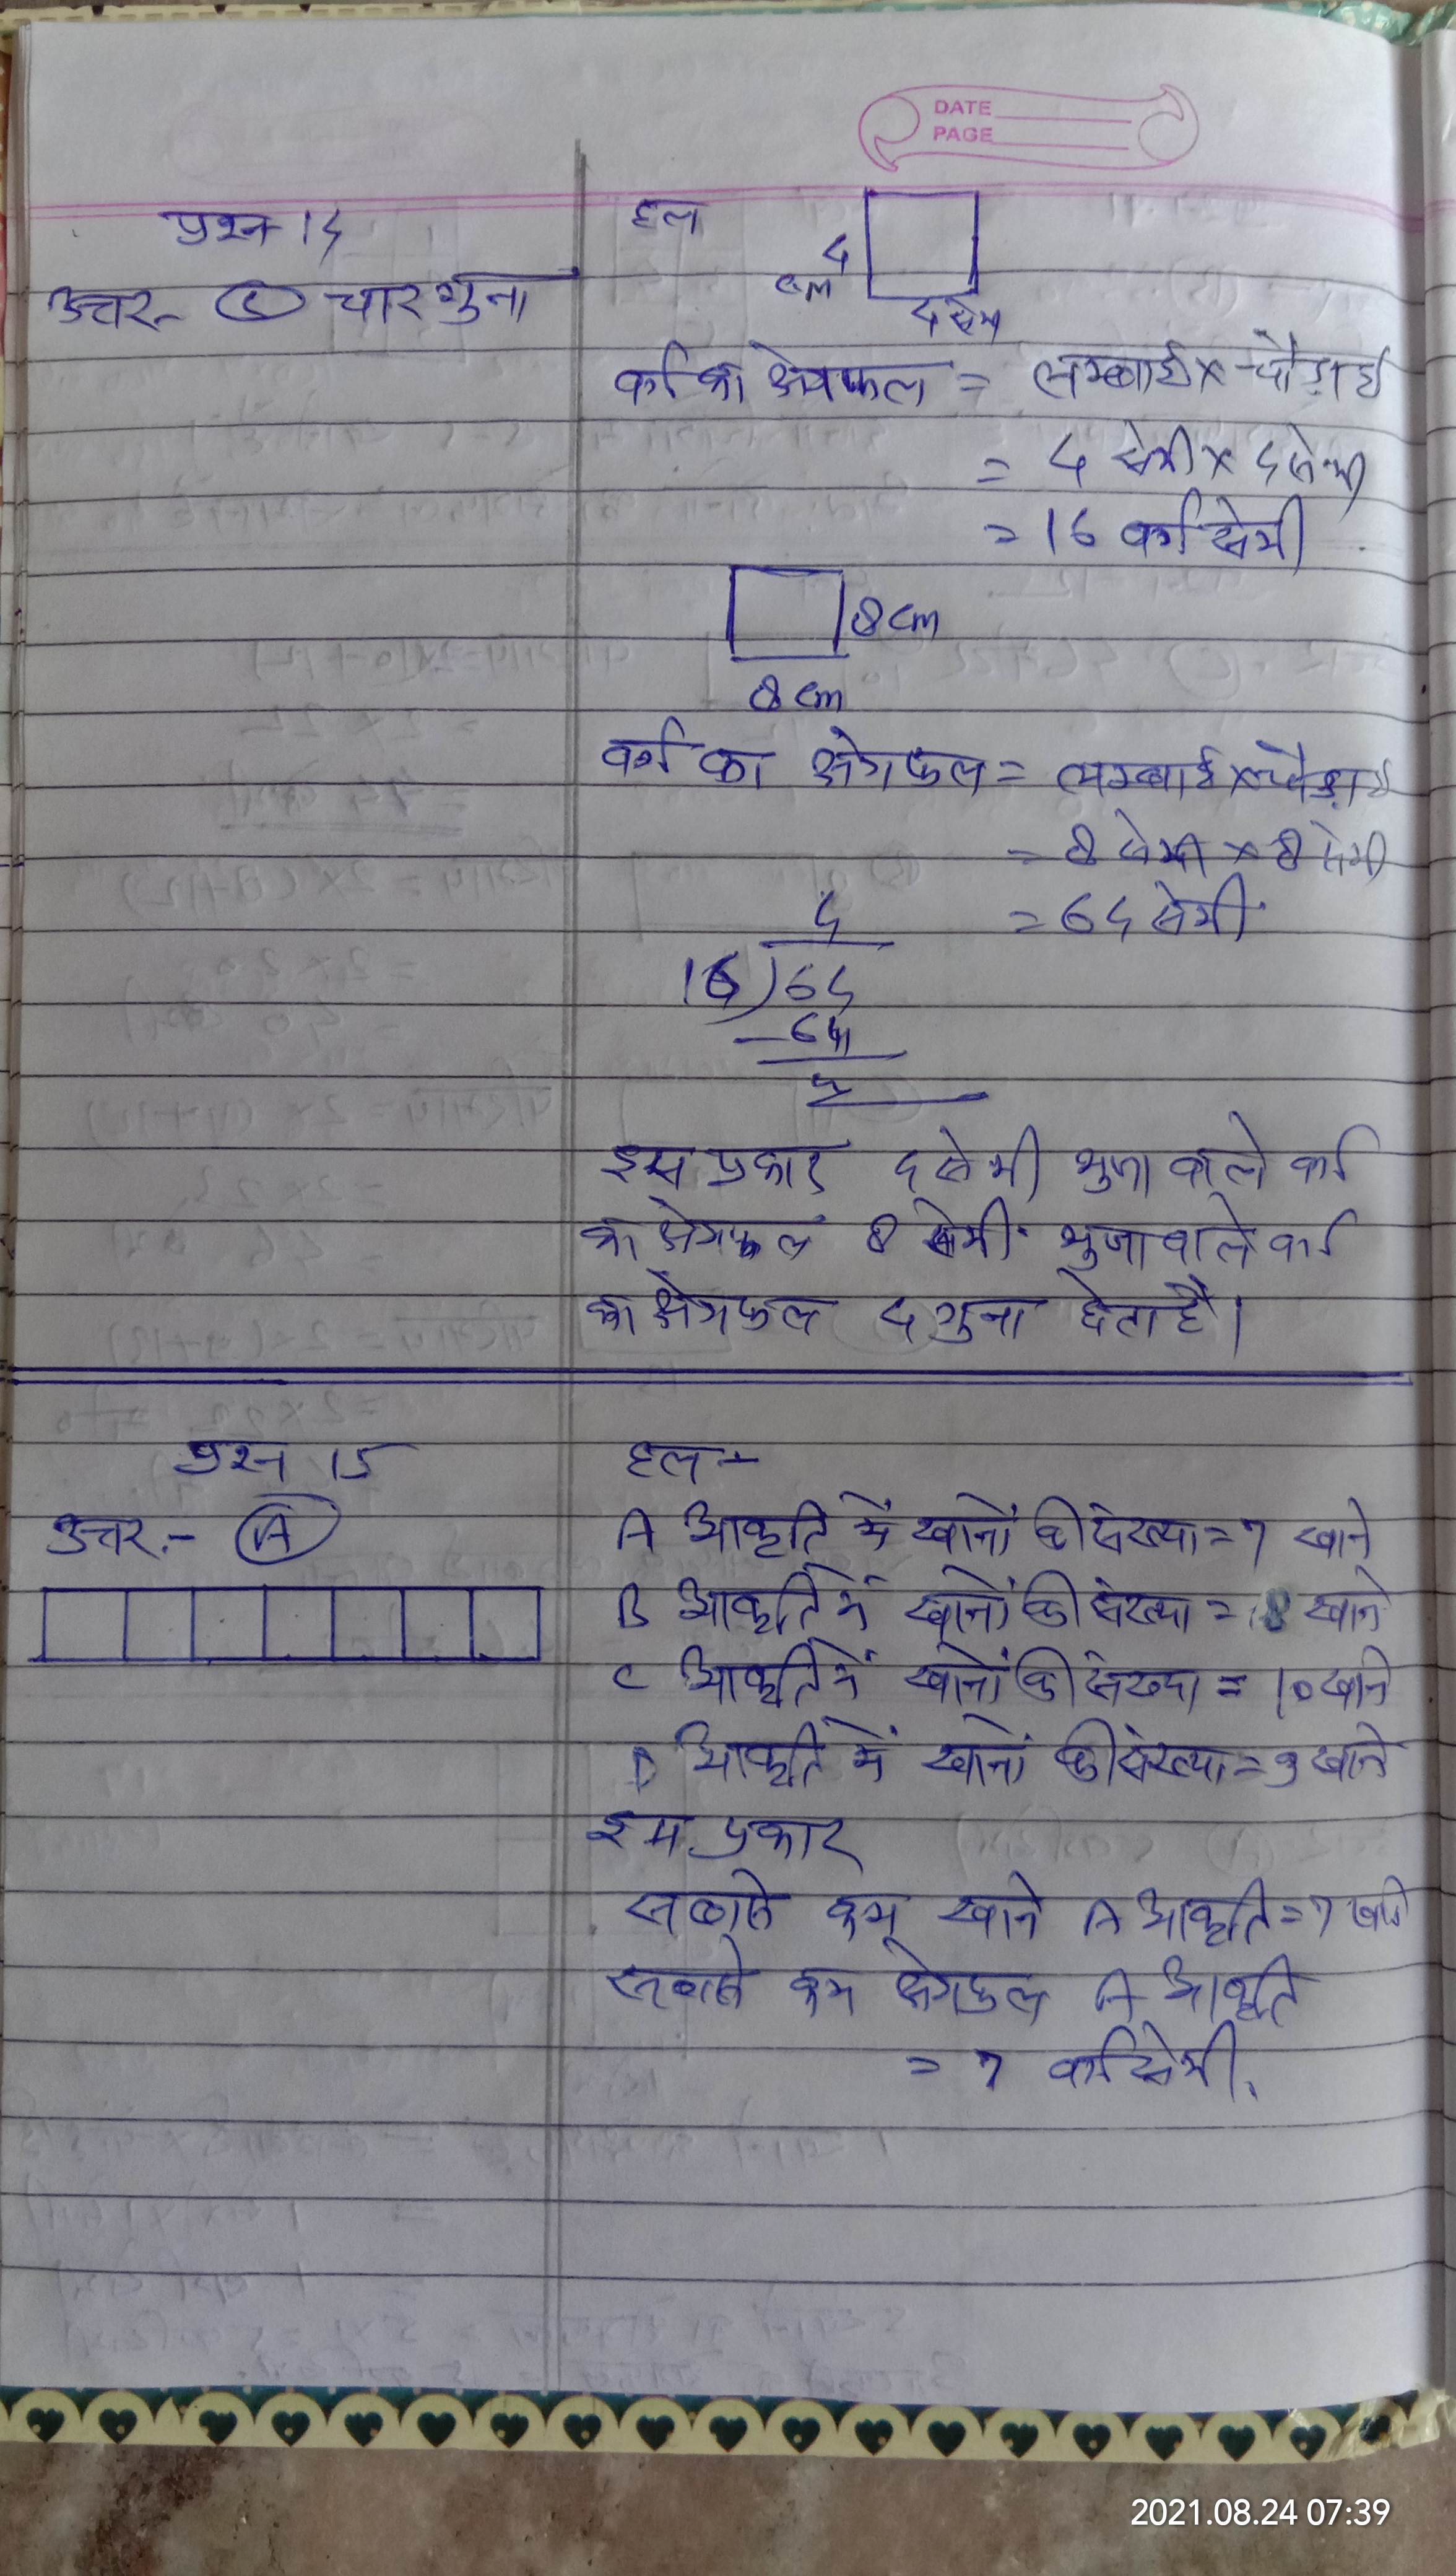 DATE
PAGE
प्रश्न 14
उत्तर - C चार गुना
हल
4
cm
4 सेमी
वर्ग का क्षेत्रफल = लम्बाई × चौड़ाई
= 4 सेमी × 4 सेमी
= 16 वर्ग सेमी
8 cm
8 cm
वर्ग का क्षेत्रफल = लम्बाई × चौड़ाई
= 8 सेमी × 8 सेमी
= 64 सेमी
4
16)64
-64
इस प्रकार 4 सेमी भुजा वाले वर्ग
का क्षेत्रफल 8 सेमी भुजा वाले वर्ग
का क्षेत्रफल 4 गुना होता है।
प्रश्न 15
उत्तर.- A
हल -
A आकृति में खानों की संख्या = 7 खाने
B आकृति में खानों की संख्या = 8 खाने
C आकृति में खानों की संख्या = 10 खाने
D आकृति में खानों की संख्या = 9 खाने
इस प्रकार
सबसे कम खाने A आकृति = 7 खाने
सबसे कम क्षेत्रफल A आकृति
= 7 वर्ग सेमी.
2021.08.24 07:39